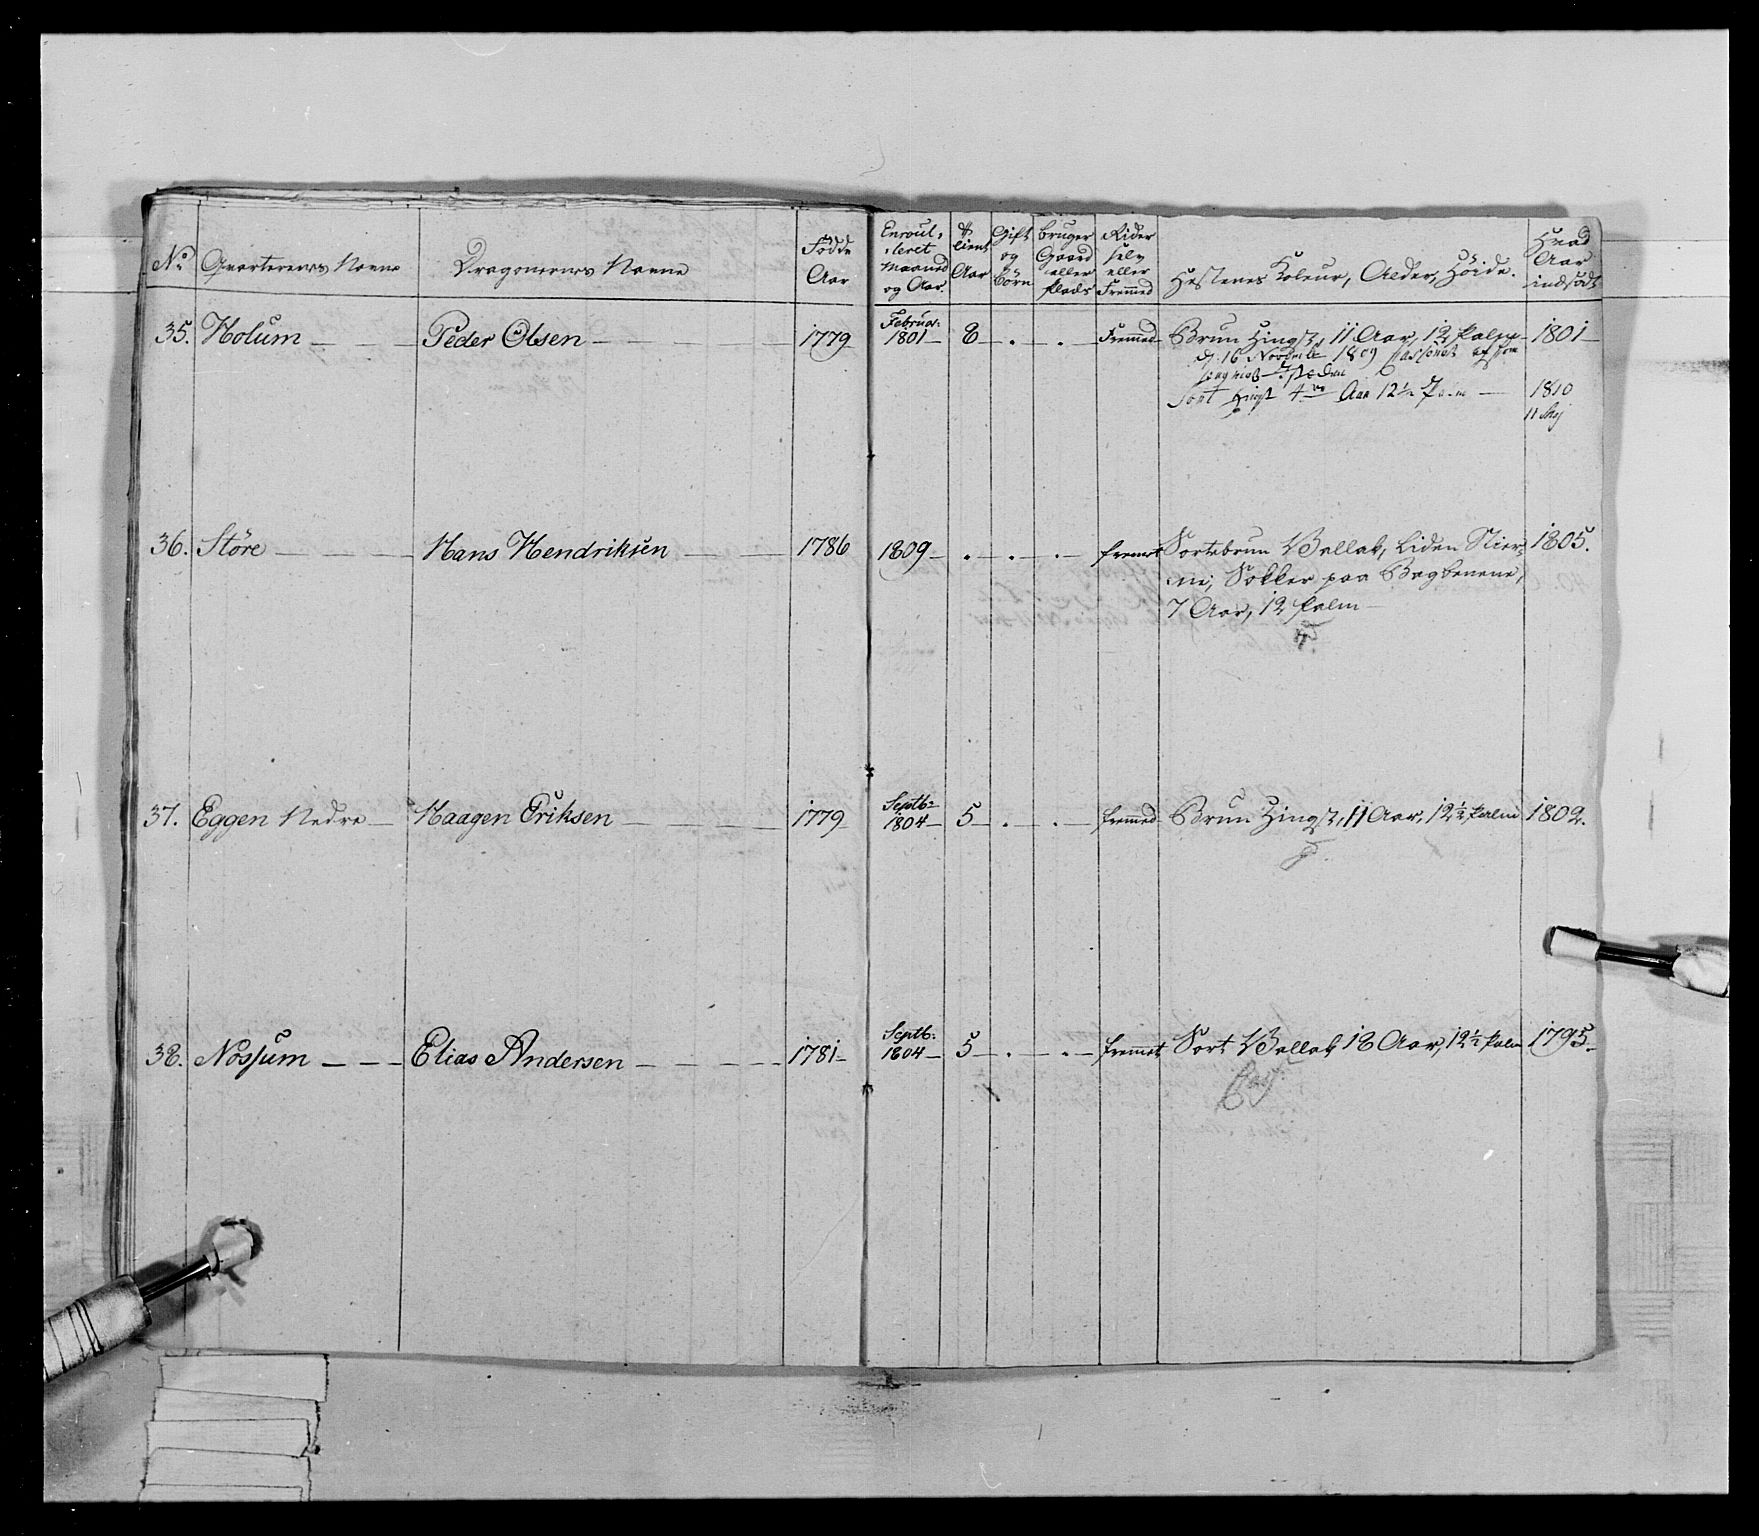 No Qvarterernes Navne Dragonernes Navne Födde Aar Enroulleret Maaned og Aar. tient Aar Gift og börn bruger Gaard eller plads Rider selv eller Fremmed Hestenes Koleur, Alder, Höide. Hvad Aar indsadt
35. Holum Peder Olsen 1779 Februar: 1801 8 . . Fremmed Brun Hingst, 11 Aar, 12 palm 1801
d. 16 Novembr 1809
Sort Hingst 4 Aar 12½ Palm 1810
11 Maj
36. Störe Hans Hendriksen 1786 1809 . . . fremet Sortebrun Vallak, liden Stier- 1805.
ne, Sokker paa Bagbenene,
7 Aar, 12 palm
37. Eggen Nedre Haagen Eriksen 1779 Septb: 1804 5 . . fremmed Brun Hingst, 11 Aar, 12½ palm 1802.
38. Nossum Elias Andersen 1781 Septb: 1804 5 . . fremmet Sort Vallak, 18 Aar, 12½ palm 1795.